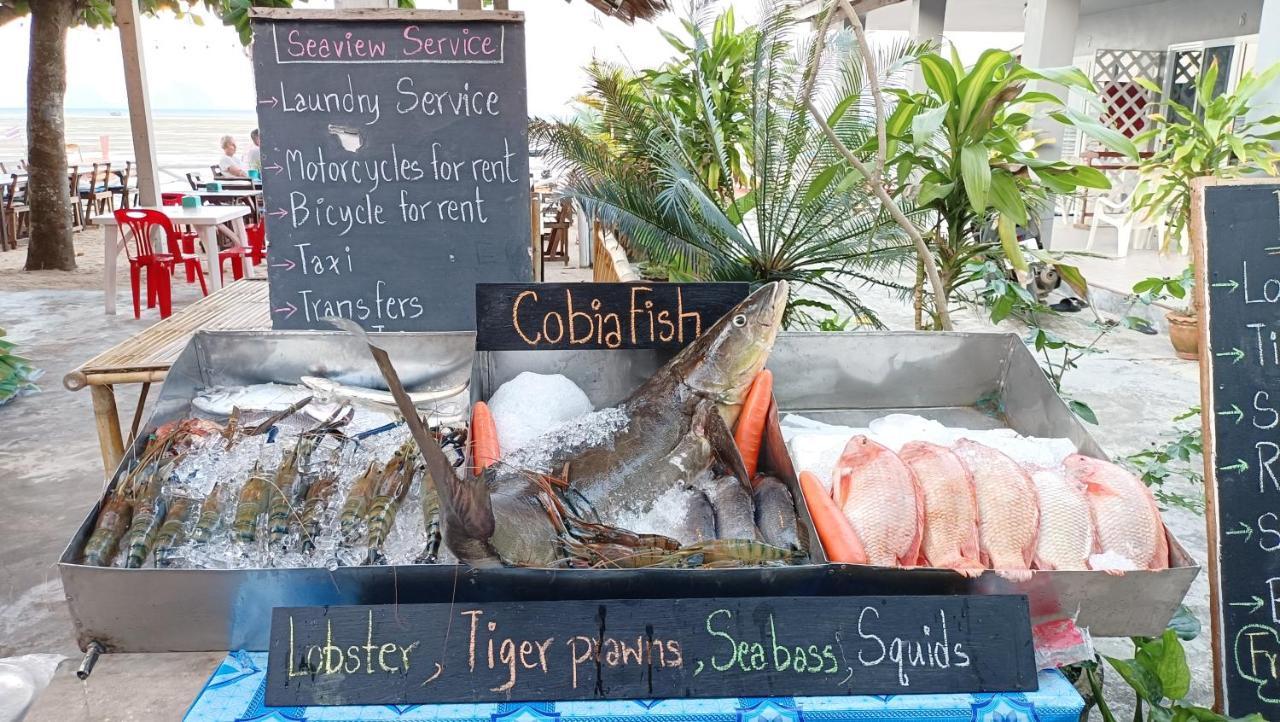 Seaview Service
→Laundry Service
→Motorcycles for rent
→Bicycle for rent
→Taxi
→Transfers
Cobia Fish
Lobster, Tiger prawns, Seabass, Squids